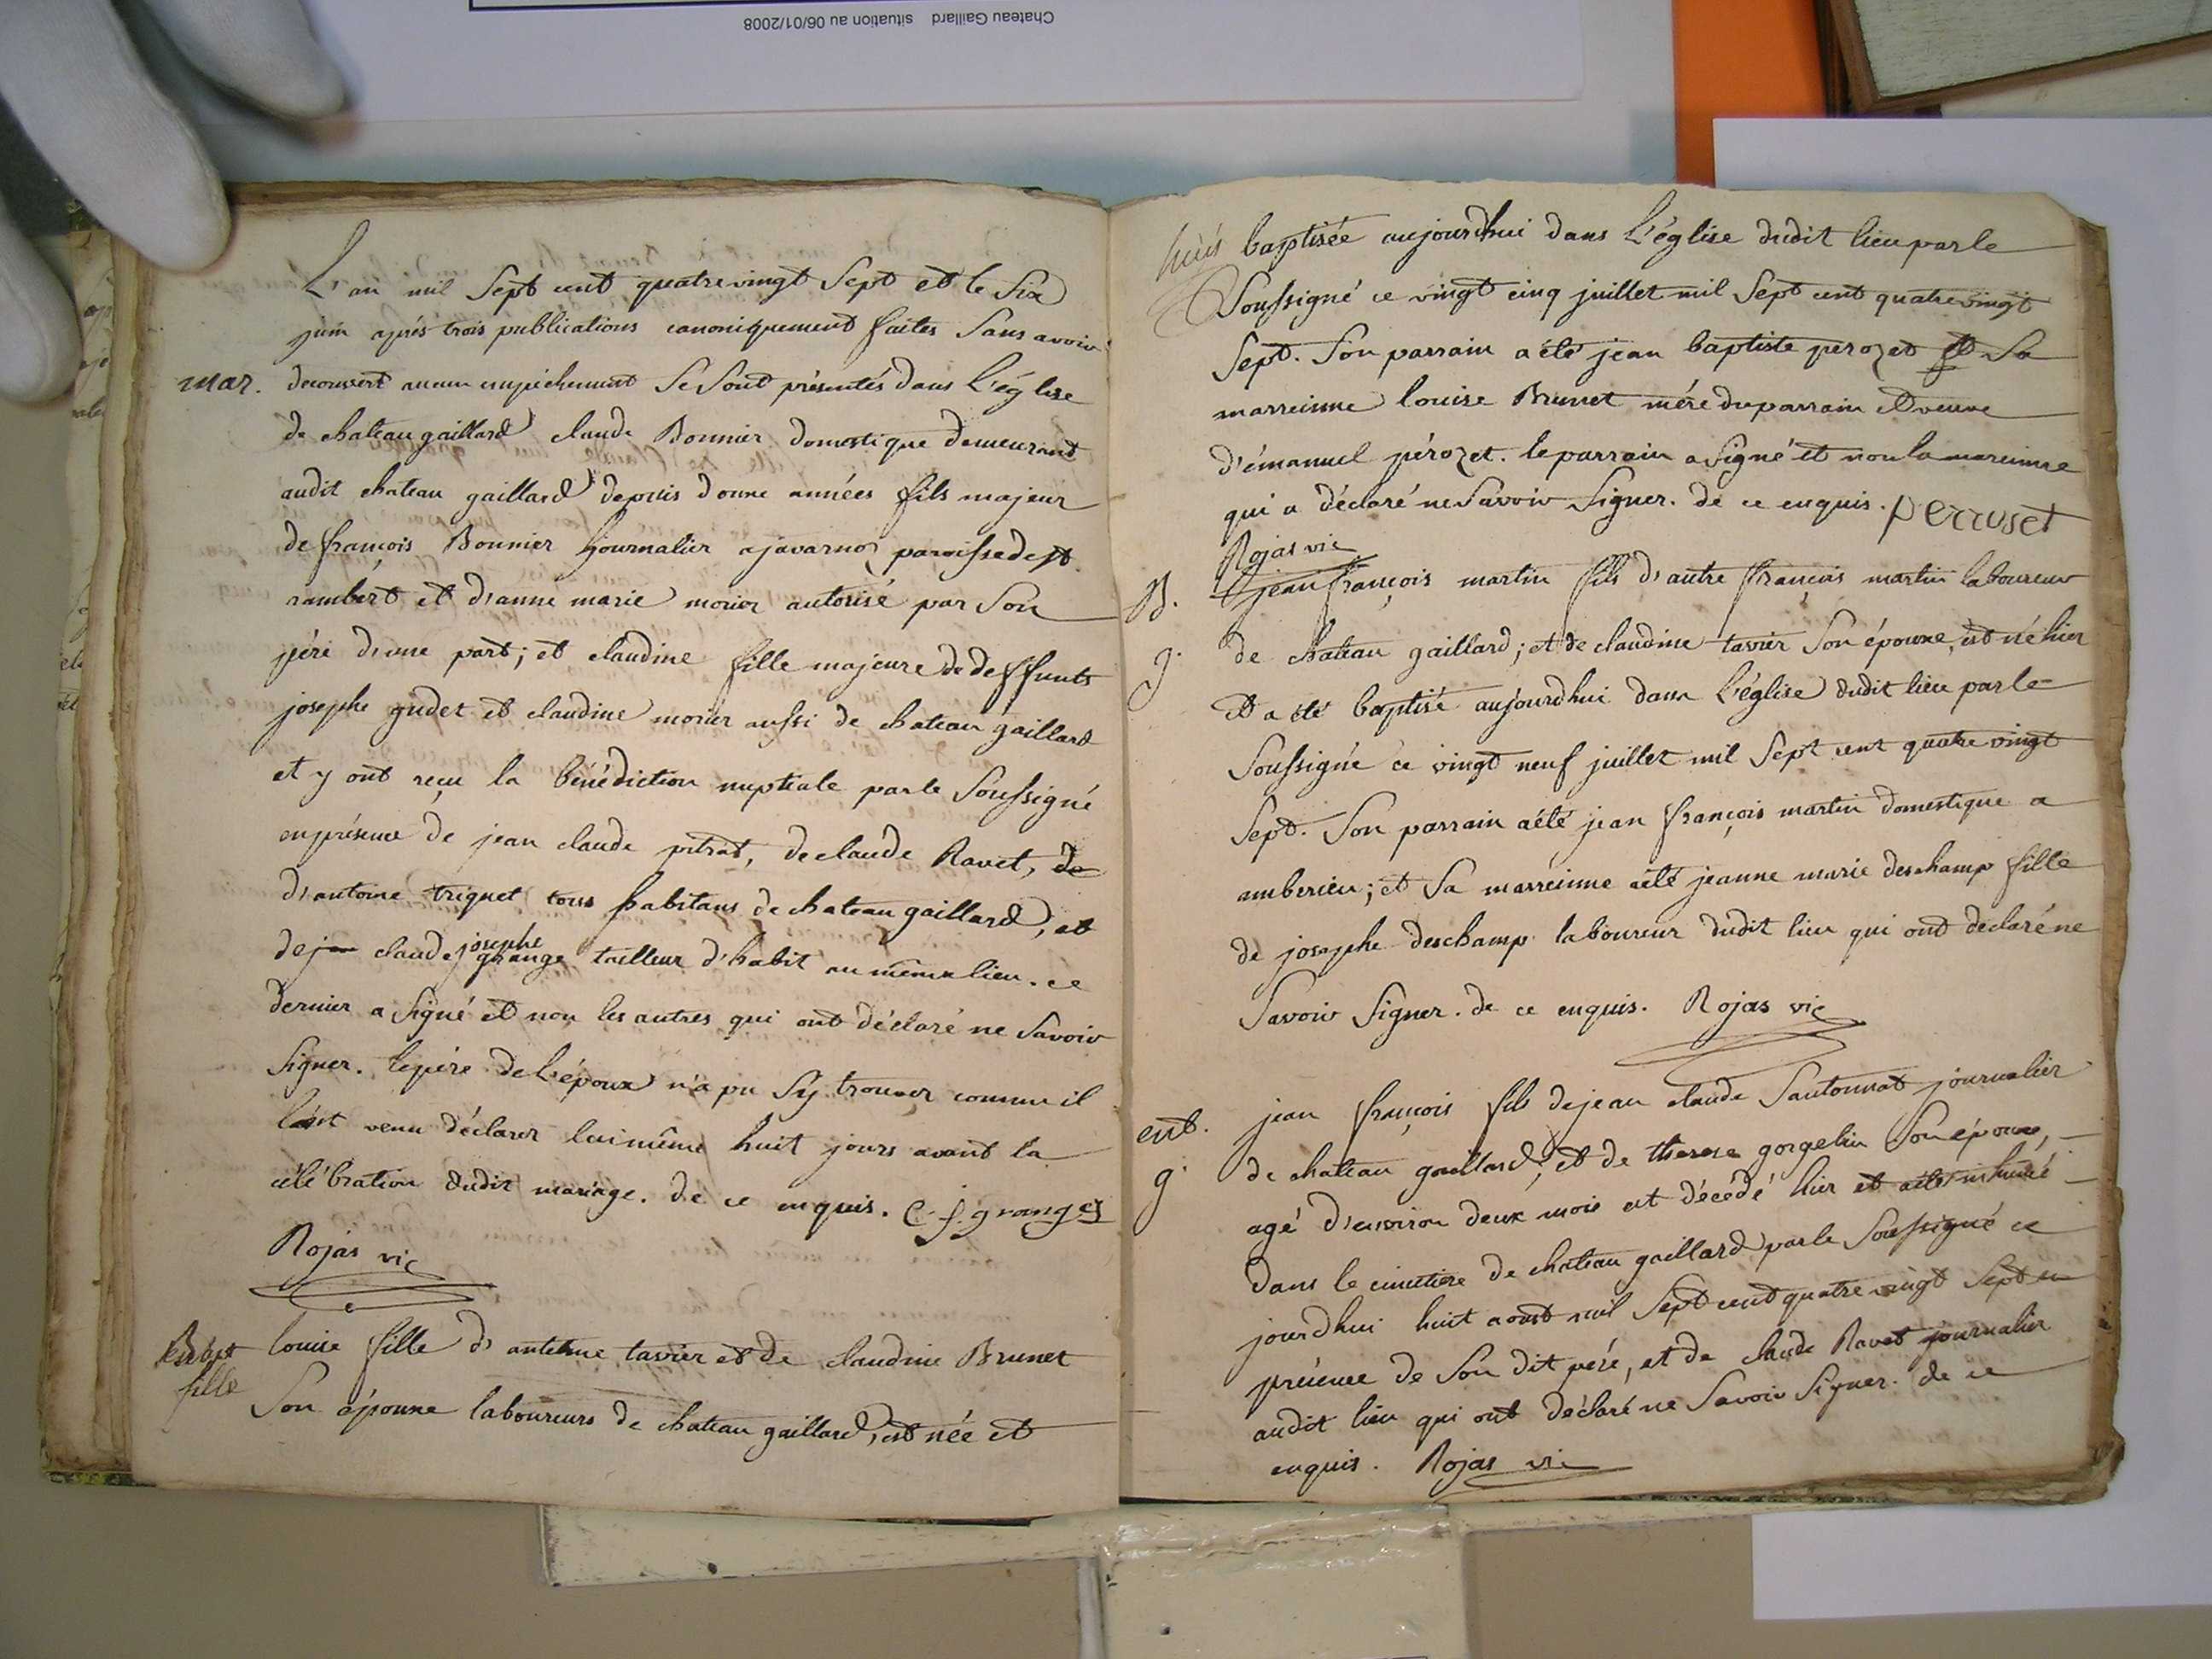 Chateau Gaillard situation au 06/01/2008
L'an mil Sept cent quatre vingt Sept et le Six
juin aprés trois publications canoniquement faites Sans avoir
mar. decouvert aucun empéchement Se Sont présentés dans L'église
de chateau gaillard claude Bonnier domestique demeurant
audit chateau gaillard depuis douxe années fils majeur
de françois Bonnier journalier a javarnoz paroisse de st.
rambert et d'anne marie morier autorisé par Son
pére d'une part; et claudine fille majeure de deffunts
josephe gudet et claudine morier aussi de chateau gaillard
et y ont reçu la bénédiction nuptiale par le Soussigné
en présence de jean claude pitrat, de claude Ravet, de
d'antoine triquet tous habitans de chateau gaillard, et
josephe
de jean claude grange tailleur d'habit au même lieu. ce
dernier a Signé et non les autres qui ont déclaré ne Savoir
Signer. le pére de L'époux n'a pu S'y trouver comme il
l'est venu déclarer lui même huit jours avant la
célébration dudit mariage. de ce enquis. C. j. granges
Rojas vic
louise fille d'antoine tavier et de claudine Brunet
fille
Son épouxe laboureurs de chateau gaillard, est née et
baptisée aujourdhui dans L'église dudit lieu par le
Soussigné ce vingt cinq juillet mil Sept cent quatre vingt
Sept. Son parrain a été jean baptiste perozet et Sa
marreinne louise Brunet mére du parrain et veuve
d'émanuel pérozet. le parrain a Signé et non la mareinne
qui a déclaré ne Savoir Signer. de ce enquis. perruset
Rojas vic
B. jean françois martin fils d'autre françois martin laboureur
g. de chateau gaillard; et de claudine tavier Son épouxe, est né hier
et a été baptisé aujourdhui dans L'église dudit lieu par le
Soussigné ce vingt neuf juillet mil Sept cent quatre vingt
Sept. Son parrain a été jean françois martin domestique a
amberieu; et Sa marréinne a été jeanne marie deschamp fille
de josephe deschamp laboureur dudit lieu qui ont declaré ne
Savoir Signer. de ce enquis. Rojas vic
ent. jean françois fils de jean claude Sautonnat journalier
g. de chateau gaillard, et de therese gorgelin Son épouxe,
agé d'environ deux mois est décédé hier et a été inhumé
dans le cimetiére de chateau gaillard par le Soussigné ce
jourdhui huit aoust mil Sept cent quatre vingt Sept en
présence de Son dit pére, et de claude Ravet journalier
audit lieu qui ont déclaré ne Savoir Signer. de ce
enquis. Rojas vic